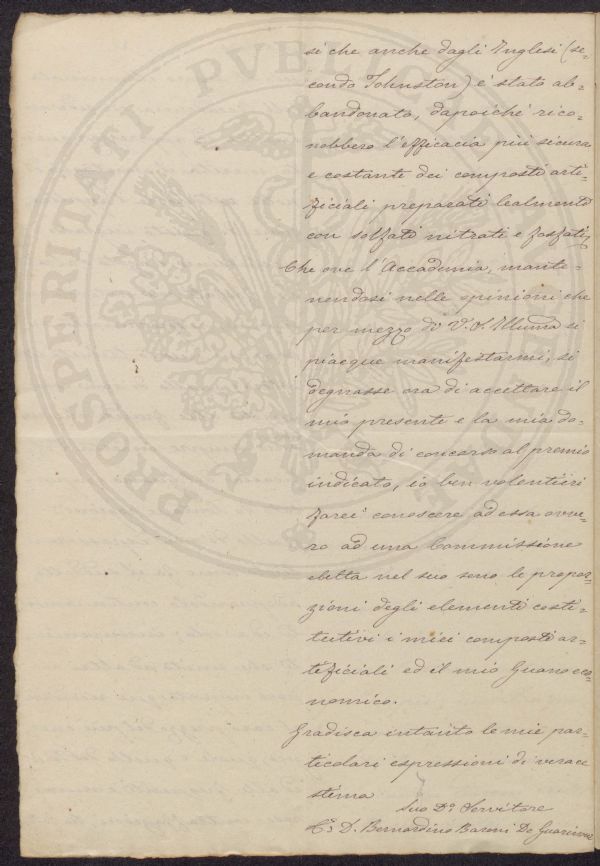 si che anche dagli Inglesi (se=
condo Johnston) è stato ab=
bandonato, dapoichè rico=
nobbero l'efficacia più sicura
e costante dei composti arti=
ficiali preparati lealmente
con solfati nitrati e fosfati.
Che ove l'Accademia, mante=
nendosi nelle opinioni che
per mezzo di V. S. Illuma si
piacque manifestarmi, si
degnasse ora di accettare il
mio presente e la mia do=
manda di concorso al premio
indicato, io ben volentieri
farei conoscere ad essa ovve=
ro ad una Commissione
eletta nel suo seno le propor=
zioni degli elementi costi=
tutivi i miei composti ar=
tificiali ed il mio Guano eco=
nomico.
Gradisca intanto le mie par=
ticolari espressioni di verace
stima
Suo Do Servitore
D. Bernardino Baroni De
PROSPERITATI PVBLICAE